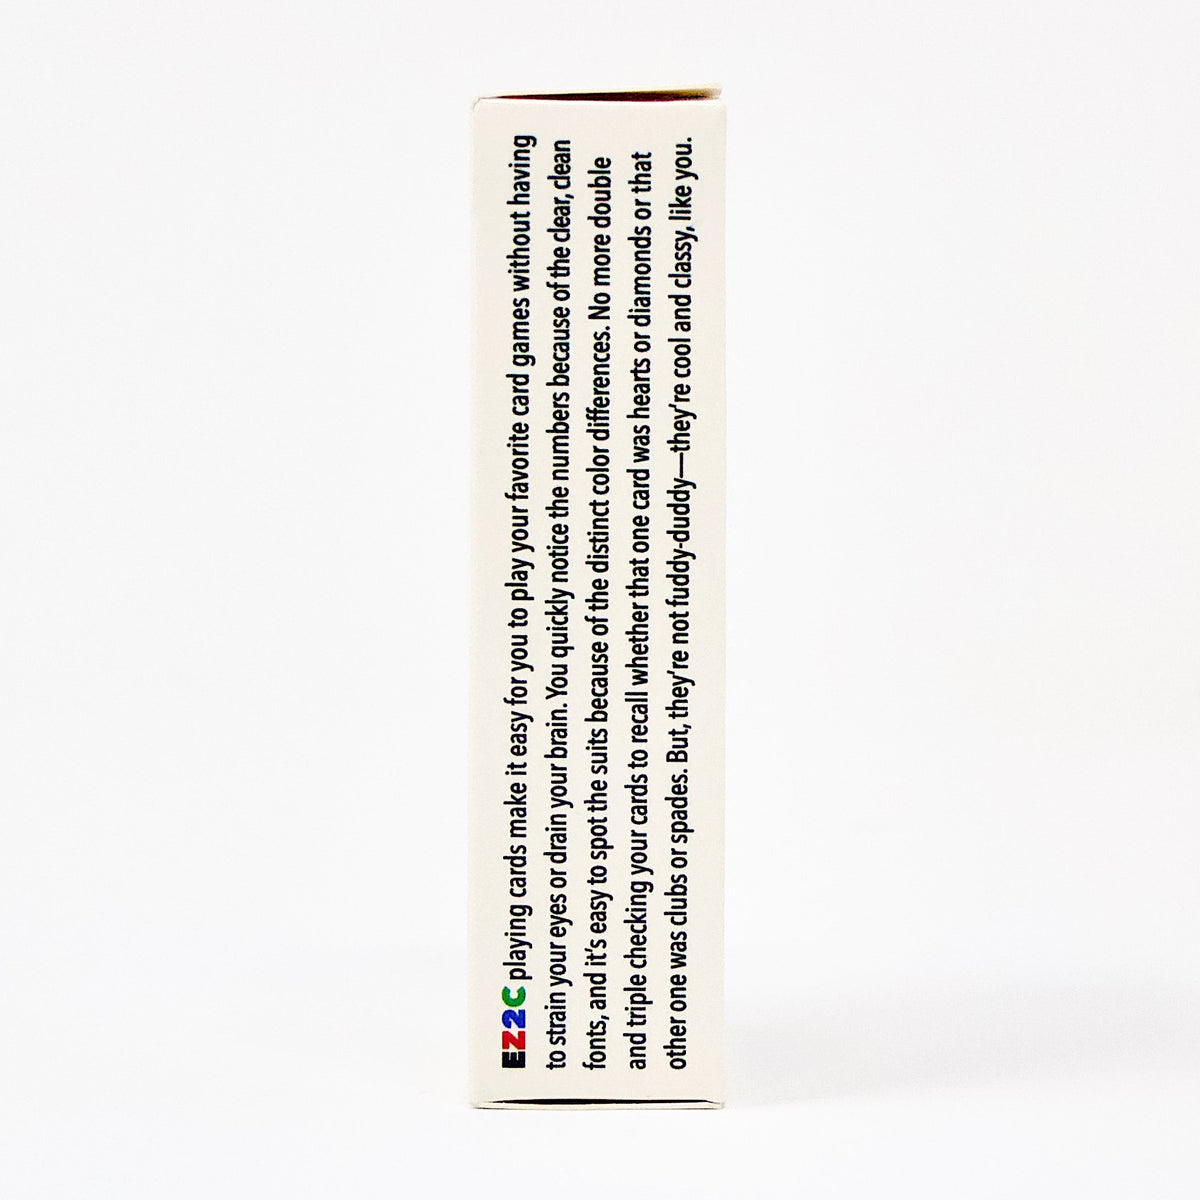 EZ2C playing cards make it easy for you to play your favorite card games without having
to strain your eyes or drain your brain. You quickly notice the numbers because of the clear, clean
fonts, and it's easy to spot the suits because of the distinct color differences. No more double
and triple checking your cards to recall whether that one card was hearts or diamonds or that
other one was clubs or spades. But, they're not fuddy-duddy—they're cool and classy, like you.